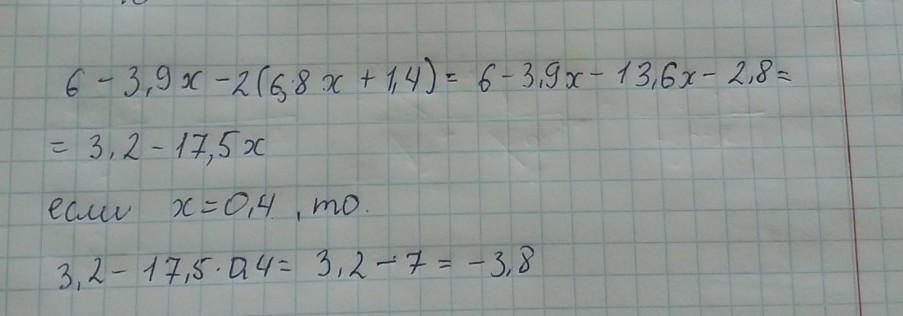 6 - 3,9x - 2(6,8x + 1,4) = 6 - 3,9x - 13,6x - 2,8 =
= 3,2 - 17,5x
если x = 0,4, то.
3,2 - 17,5 · 0,4 = 3,2 - 7 = -3,8